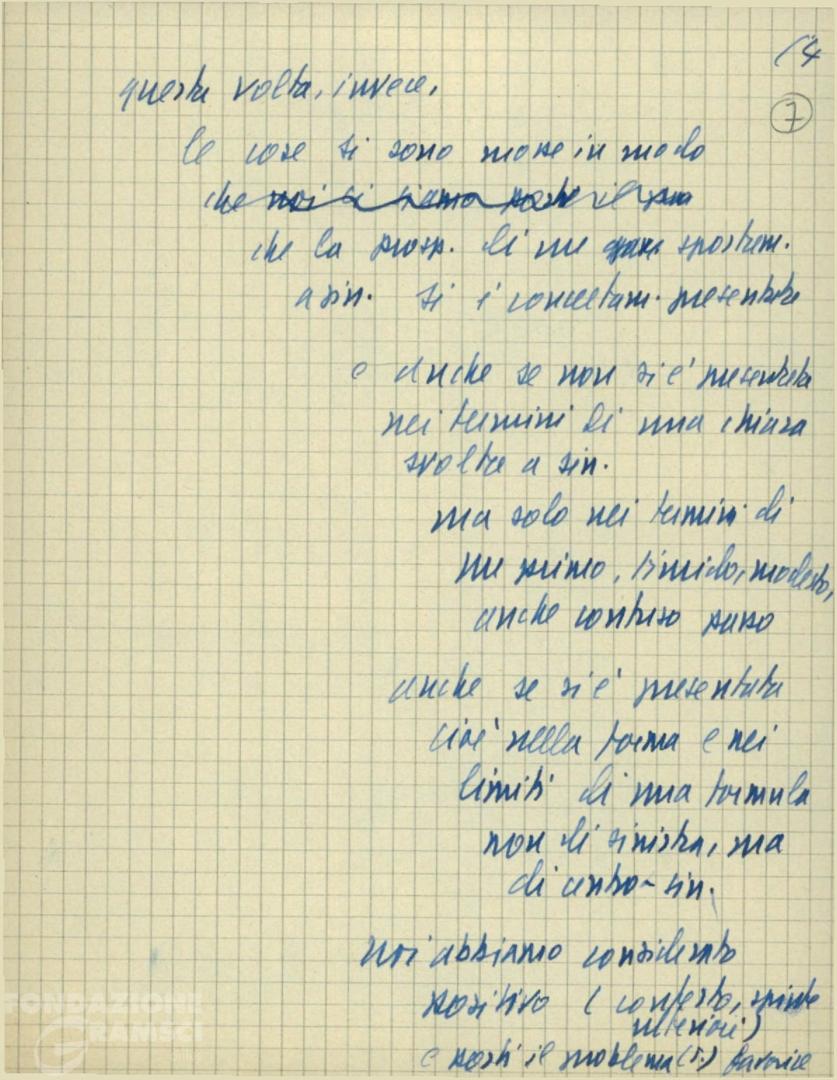 14
7
questa volta, invece,
le cose si sono mosse in modo
che noi ci siamo
che la prosp. di uno spostam.
a sin. si è concretam. presentata
e anche se non si è presentata
nei termini di una chiara
svolta a sin.
ma solo nei termini di
un primo, timido, modesto,
anche confuso passo
anche se si è presentata
cioè nella forma e nei
limiti di una formula
non di sinistra, ma
di centro-sin.
noi abbiamo considerato
positivo (contesto, spinte
ulteriori)
e posti il problema
FONDAZIONE
GRAMSCI